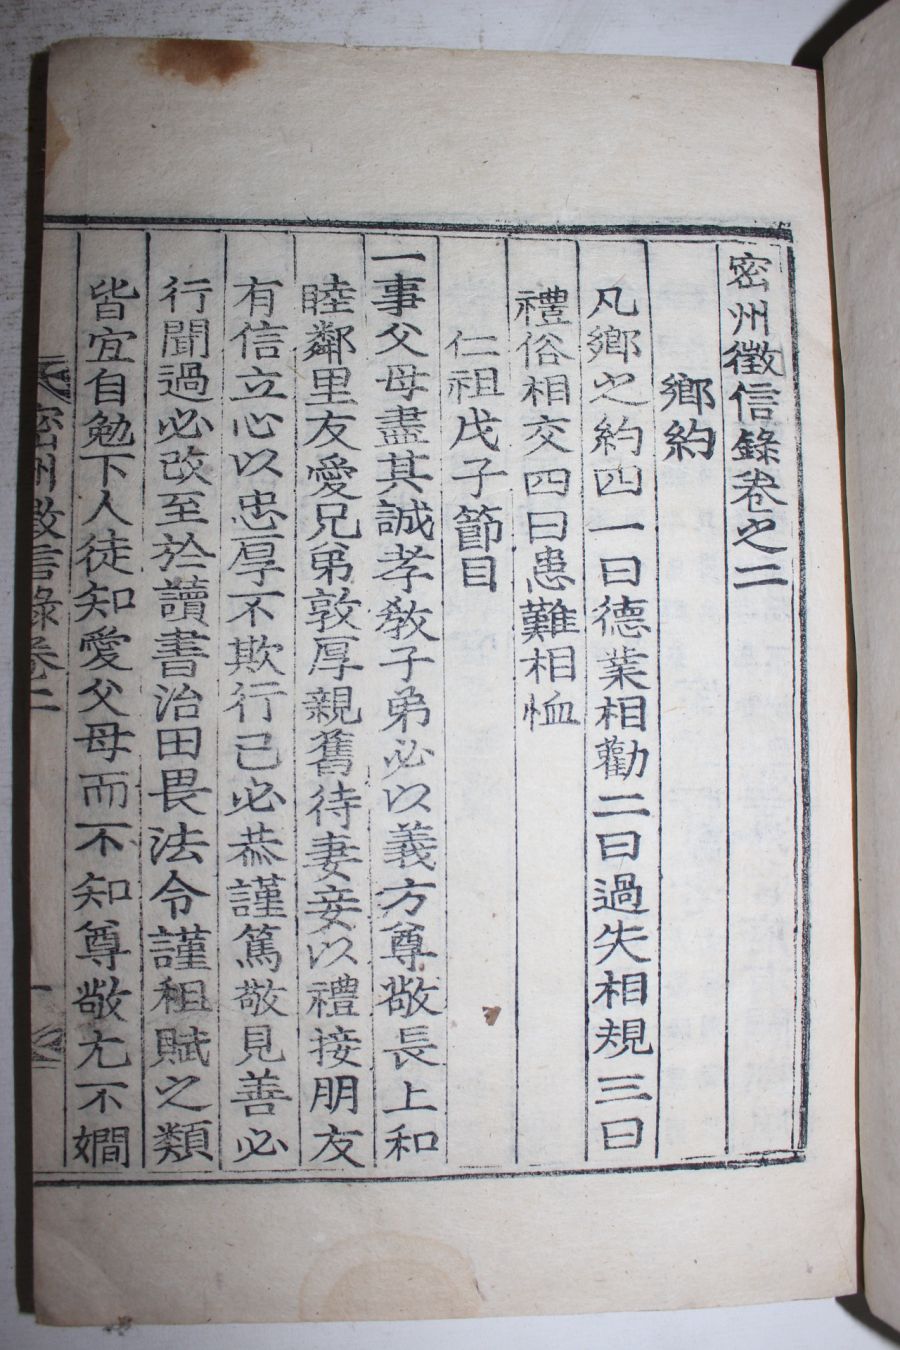 密州徵信錄卷之二
鄉約
凡鄉之約四一曰德業相勸二曰過失相規三曰
禮俗相交四曰患難相恤
仁祖戊子節目
一事父母盡其誠孝敎子弟必以義方尊敬長上和
睦鄰里友愛兄弟敦厚親舊待妻妾以禮接朋友
有信立心以忠厚不欺行己必恭謹篤敬見善必
行聞過必改至於讀書治田畏法令謹租賦之類
皆宜自勉下人徒知愛父母而不知尊敬尤不嫺
密州徵信錄卷二
一